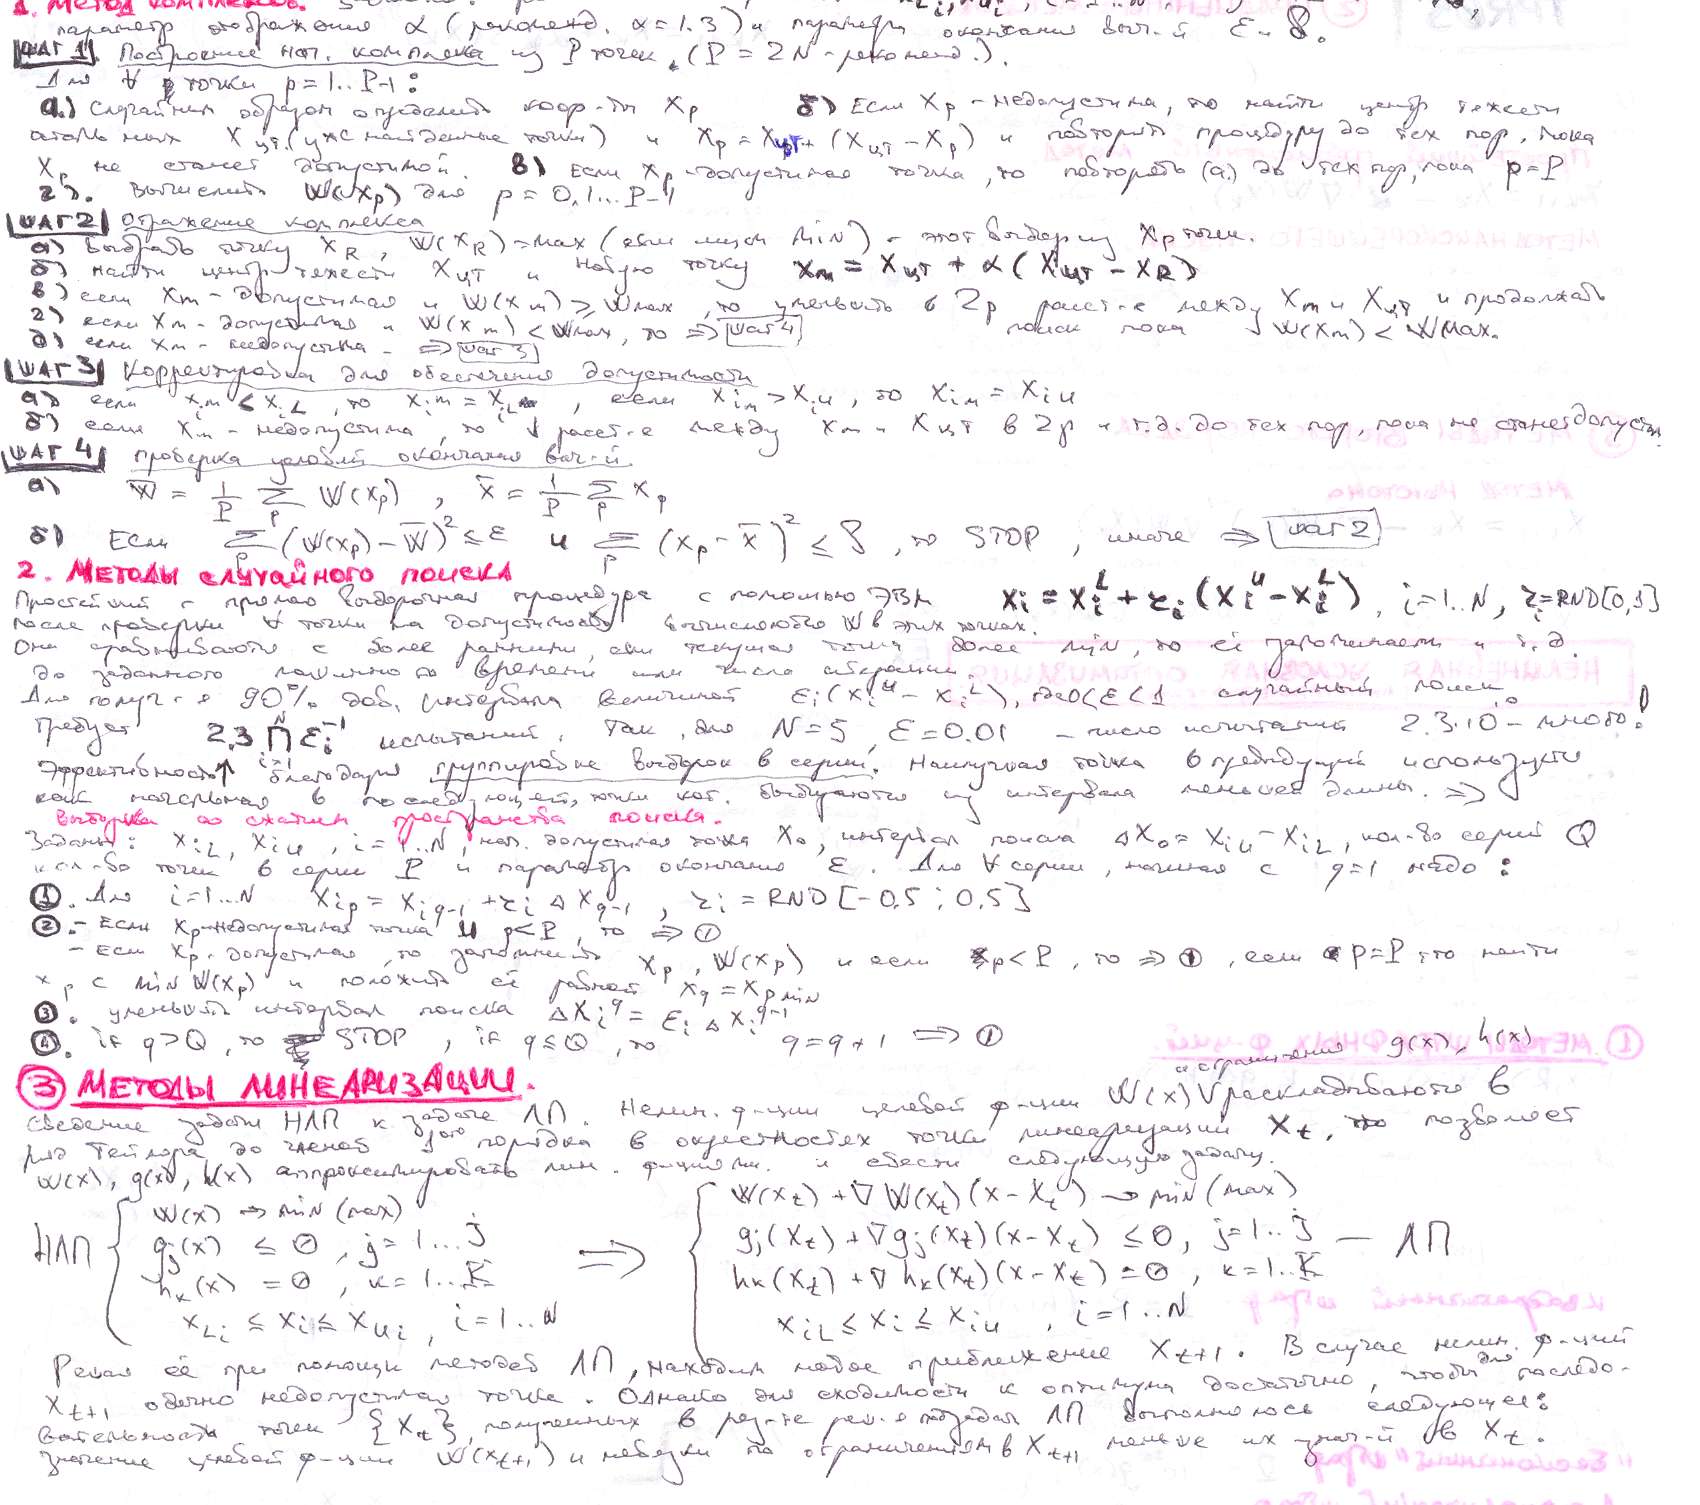 1. Метод комплексов.
параметр отображения α (рекоменд. α=1.3) и параметры окончания выч-й ε и δ.
ШАГ 1. Построение нач. комплекса из P точек. (P = 2N - рекоменд.).
Для ∀ точки p=1..P-1:
а.) случайным образом определить коор-ты Xp б) Если Xp - недопустима, то найти центр тяжести
остальных Xцт (уже найденные точки) и Xp = Xцт + (Xцт - Xp) и повторить процедуру до тех пор, пока
Xp не станет допустимой. в) Если Xp - допустимая точка, то повторять (а.) до тех пор, пока p=P
г). Вычислить W(Xp) для p=0,1...P-1
ШАГ 2 Отражение комплекса
а) выбрать точку XR, W(XR)=max (если ищем min) - этот выбор из Xp точек.
б) найти центр тяжести Xцт и новую точку Xm = Xцт + α(Xцт - XR)
в) если Xm - допустимая и W(Xm) ≥ Wmax, то уменьшить в 2р расст-е между Xm и Xцт и продолжать
поиск пока W(Xm) < Wmax.
г) если Xm - допустимая и W(Xm) < Wmax, то ⇒ шаг 4
д) если Xm - недопустима - ⇒ шаг 3
ШАГ 3 Корректировка для обеспечения допустимости
а) если Xim < XiL, то Xim = XiL, если Xim > Xiu, то Xim = Xiu
б) если Xm - недопустима, то ↓ расст-е между Xm и Xцт в 2р и т.д. до тех пор, пока не станет допустим.
ШАГ 4 проверка условий окончания выч-й
а) W̄ = 1/P Σp W(Xp), x̄ = 1/P Σp Xp
б) Если Σp (W(Xp) - W̄)² ≤ ε и Σp (Xp - x̄)² ≤ δ, то STOP, иначе ⇒ шаг 2
2. Методы случайного поиска
Простейший - прямая выборочная процедура с помощью ЭВМ Xi = Xi^L + ri (Xi^u - Xi^L), i=1..N, ri=RND[0,1]
после проверки ∀ точки на допустимость вычисляются W в этих точках.
Они сравниваются с более ранними, если текущая точка более min, то её запоминаем и т.д.
до заданного машинного времени или числа итераций.
Для получ-я 90% дов. интервала величиной εi(Xi^u - Xi^L), где 0<ε<1 случайный поиск
требует 2,3 ∏ᵢ₌₁ᴺ εi⁻¹ испытаний. Так, для N=5, ε=0.01 - число испытаний 2.3·10¹⁰ - много!
Эффективность↑ благодаря группировке выборок в серии. Наилучшая точка в предыдущей используется
как начальная в последующей, точки кот. выбираются из интервала меньшей длины. ⇒
Выборка со сжатием пространства поиска.
Заданы: XiL, Xiu, i=1..N, нач. допустимая точка X0, интервал поиска ΔX0 = Xiu - XiL, кол-во серий Q
кол-во точек в серии P и параметр окончания ε. Для ∀ серии, начиная с q=1 надо:
1. Для i=1..N Xip = Xiq-1 + ri ΔXq-1, ri = RND[-0,5; 0,5]
2. - Если Xp - недопустимая точка и p<P, то ⇒ ①
- Если Xp - допустимая, то запомнить Xp, W(Xp) и если p<P, то ⇒ ①, если p=P, то найти
Xp с min W(Xp) и положить её равной Xq = Xp min
3. уменьшить интервал поиска ΔXi^q = εi ΔXi^q-1
4. if q>Q, то STOP, if q≤Q, то q=q+1 ⇒ ①
3 Методы линеаризации.
и ограничения g(x), h(x)
Сведение задачи НЛП к задаче ЛП. Нелин. ф-ции целевой ф-ции W(x) V раскладываются в
ряд Тейлора до членов 1ого порядка в окрестностях точки линеаризации Xt, что позволяет
W(x), g(x), h(x) аппроксимировать лин. функциями. и свести следующую задачу.
НЛП { W(x) → min (max) ⇒ { W(Xt) + ∇W(Xt)(x - Xt) → min (max)
gj(x) ≤ 0, j=1...J gj(Xt) + ∇gj(Xt)(x - Xt) ≤ 0, j=1..J — ЛП
hk(x) = 0, k=1...K hk(Xt) + ∇hk(Xt)(x - Xt) = 0, k=1..K
XLi ≤ Xi ≤ Xui, i=1..N XiL ≤ Xi ≤ Xiu, i=1..N
Решая её при помощи методов ЛП, находим новое приближение Xt+1. В случае нелин. ф-ций
Xt+1 обычно недопустимая точка. Однако для сходимости к оптимуму достаточно, чтобы для последо-
вательности точек {Xt}, полученных в рез-те реш-я подзадач ЛП выполнялось следующее:
значение целевой ф-ции W(Xt+1) и невязки по ограничениям в Xt+1 меньше их знач-й в Xt.